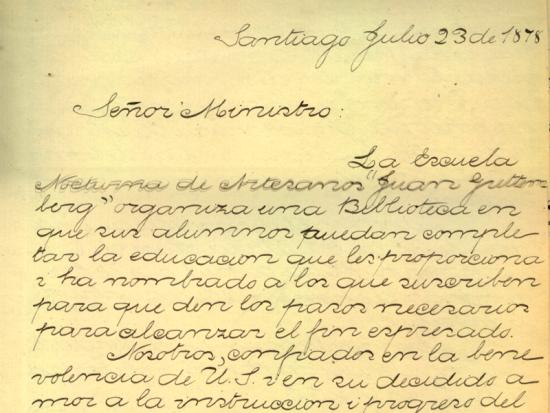 Santiago Julio 23 de 1878
Señor Ministro:
La Escuela
Nocturna de Artesanos "Juan Gutten-
berg" organiza una Biblioteca en
que sus alumnos puedan comple
tar la educacion que les proporciona
i ha nombrado a los que suscriben
para que den los pasos necesarios
para alcanzar el fin espresado.
Nosotros, confiados en la bene
volencia de U. S. i en su decidido a
mor a la instruccion i progreso del